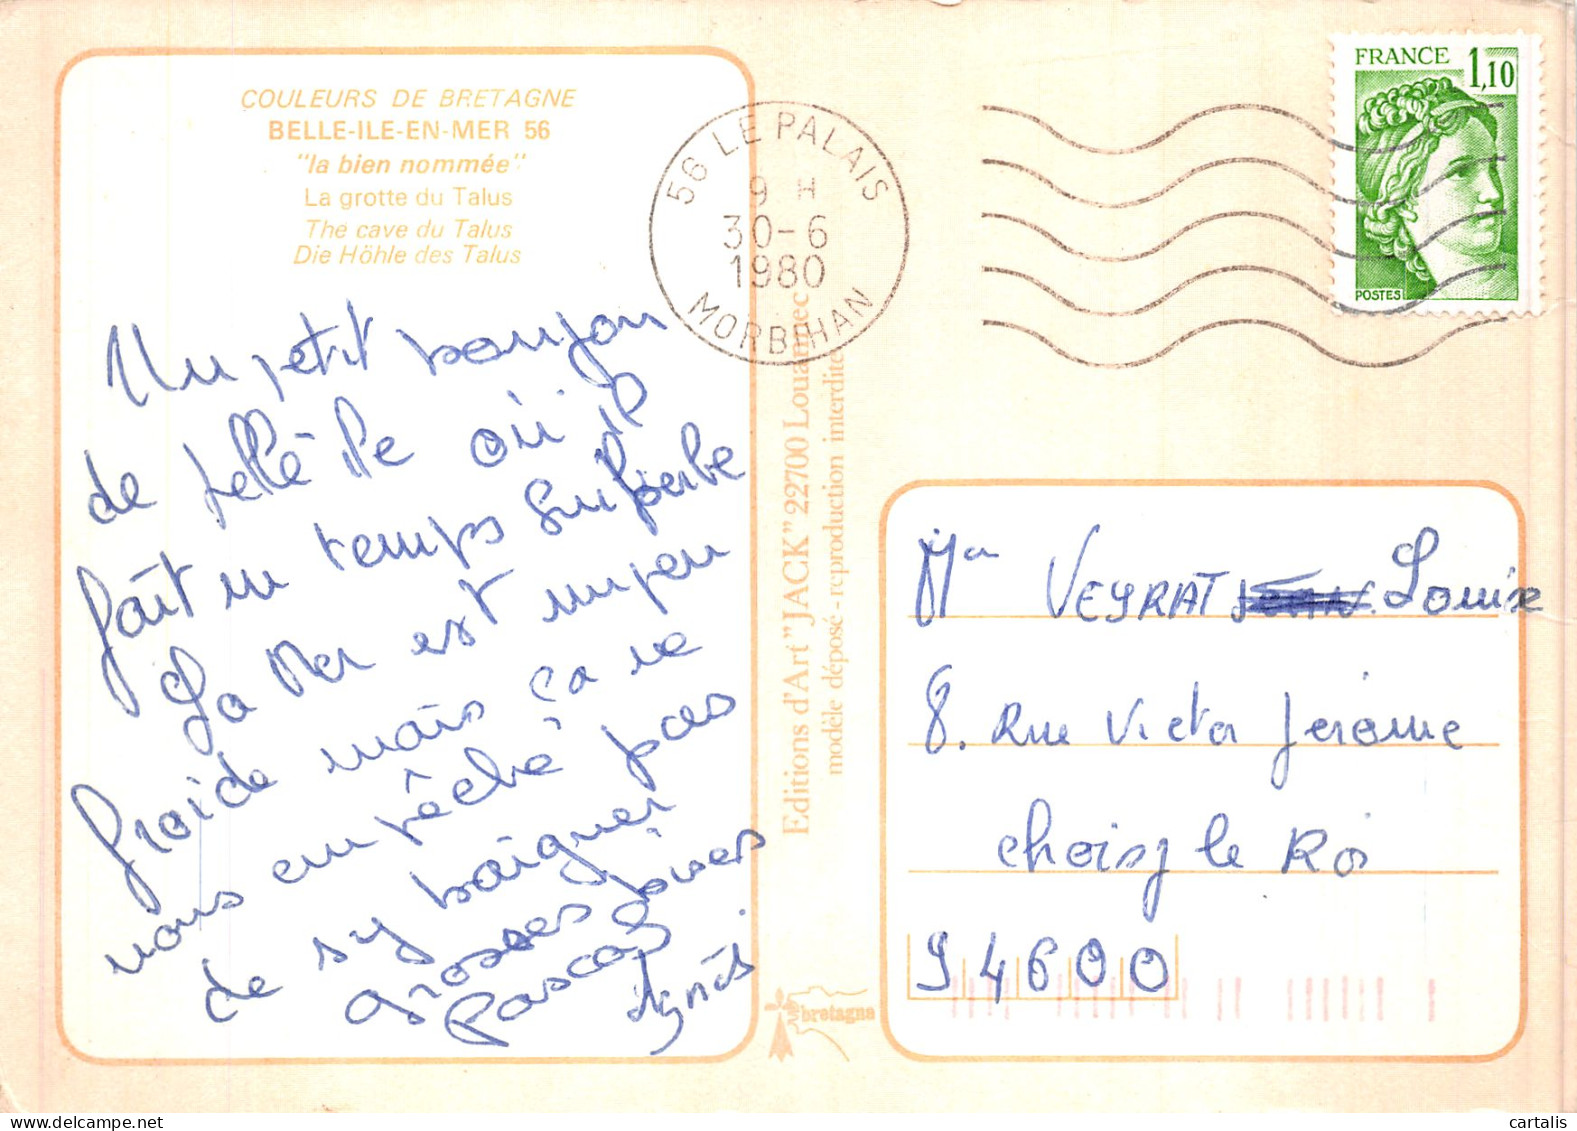 COULEURS DE BRETAGNE
BELLE-ILE-EN-MER 56
"la bien nommée"
La grotte du Talus
The cave du Talus
Die Höhle des Talus
Un petit bonjour
de belle île où il
fait un temps superbe
La Mer est un peu
froide mais ça ne
nous empêche pas
de sy baigner
Grosses bises
Pascal
Agnès
56 LE PALAIS
9 H
30-6
1980
MORBIHAN
FRANCE 1,10
POSTES
Editions d'Art "JACK" 22700 Louannec
modèle déposé - reproduction interdite
bretagne
VEYRAT Louise
8. Rue Victor Jerome
Choisy le Roi
94600
cartalis